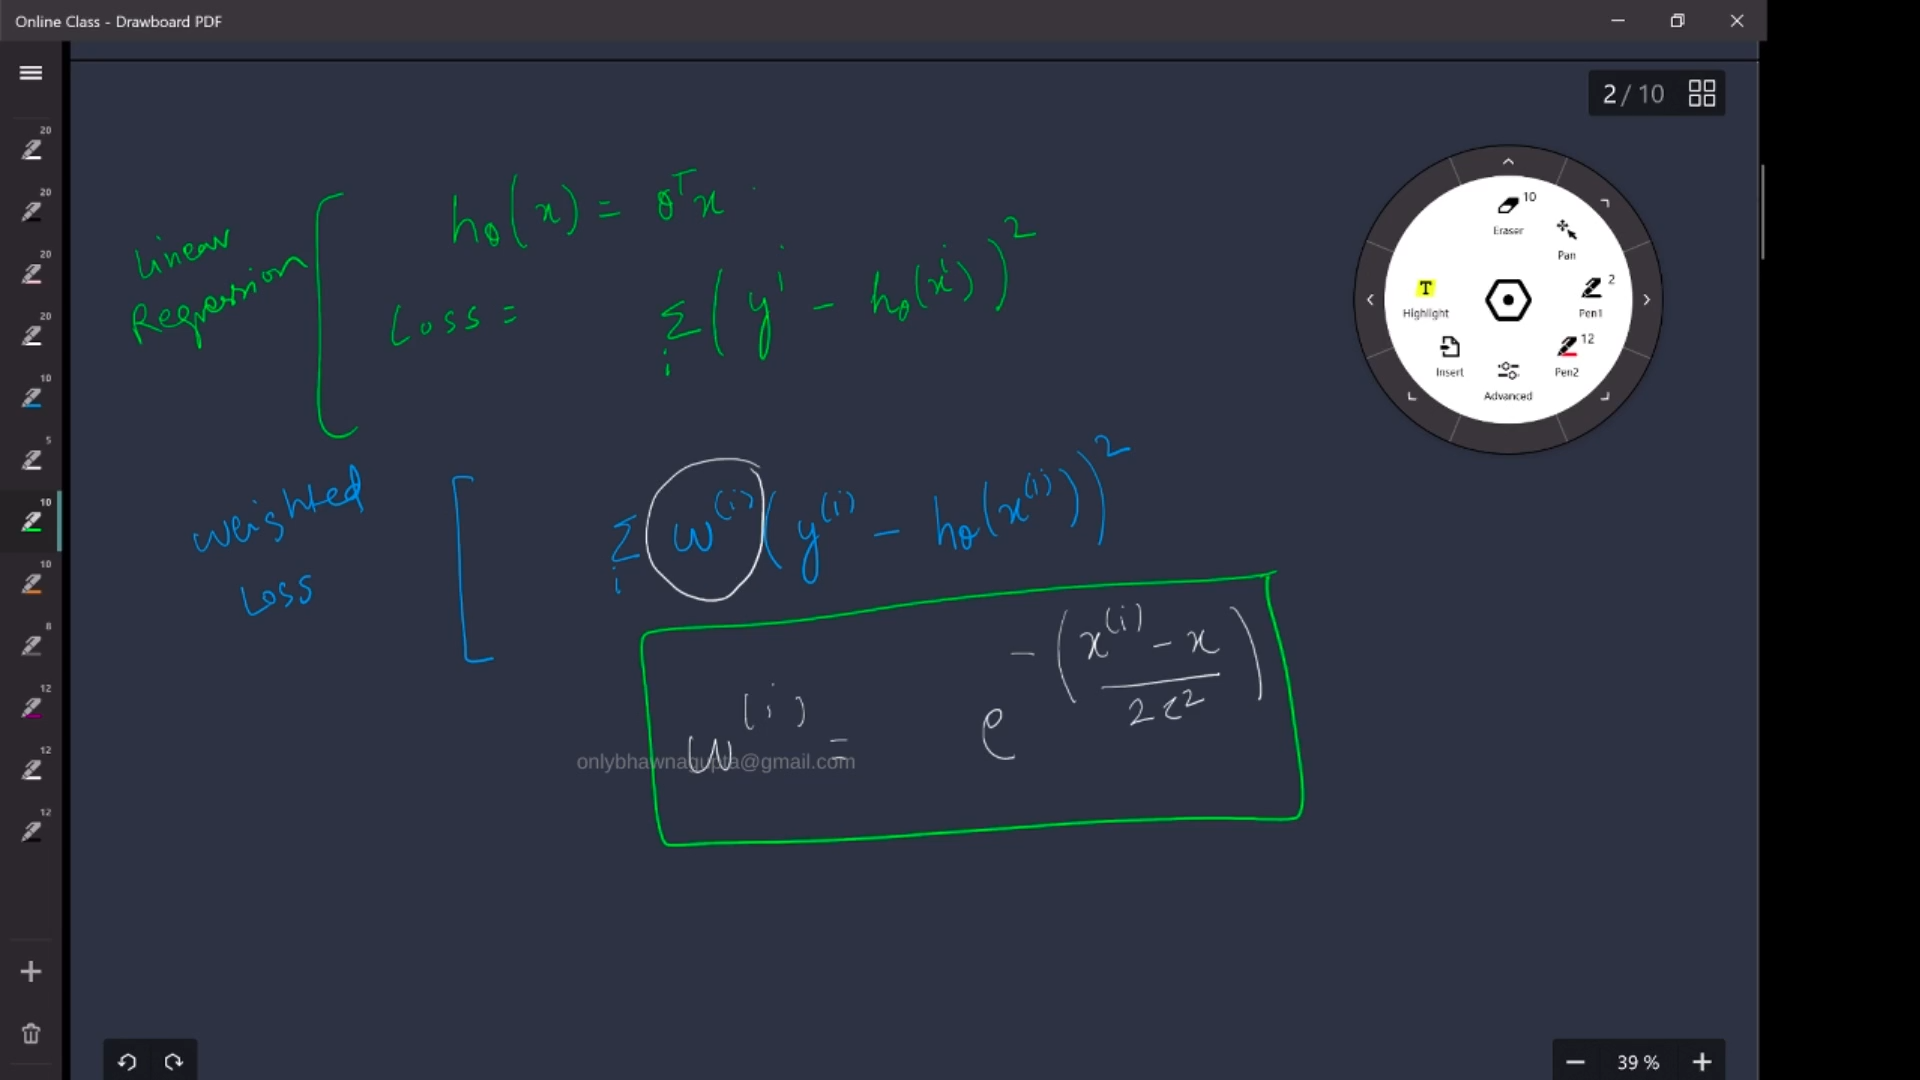 Online Class - Drawboard PDF
2 / 10
20
20
20
20
10
5
10
10
8
12
12
12
Eraser 10
Pan
Highlight
Pen1 2
Insert
Pen2 12
Advanced
Linear
Regression
hθ(x) = θᵀx
Loss = Σᵢ (yⁱ - hθ(xⁱ))²
Weighted
Loss
Σᵢ w⁽ⁱ⁾ (y⁽ⁱ⁾ - hθ(x⁽ⁱ⁾))²
w⁽ⁱ⁾ = e^-((x⁽ⁱ⁾ - x)/2τ²)
onlybhawnagupta@gmail.com
39 %